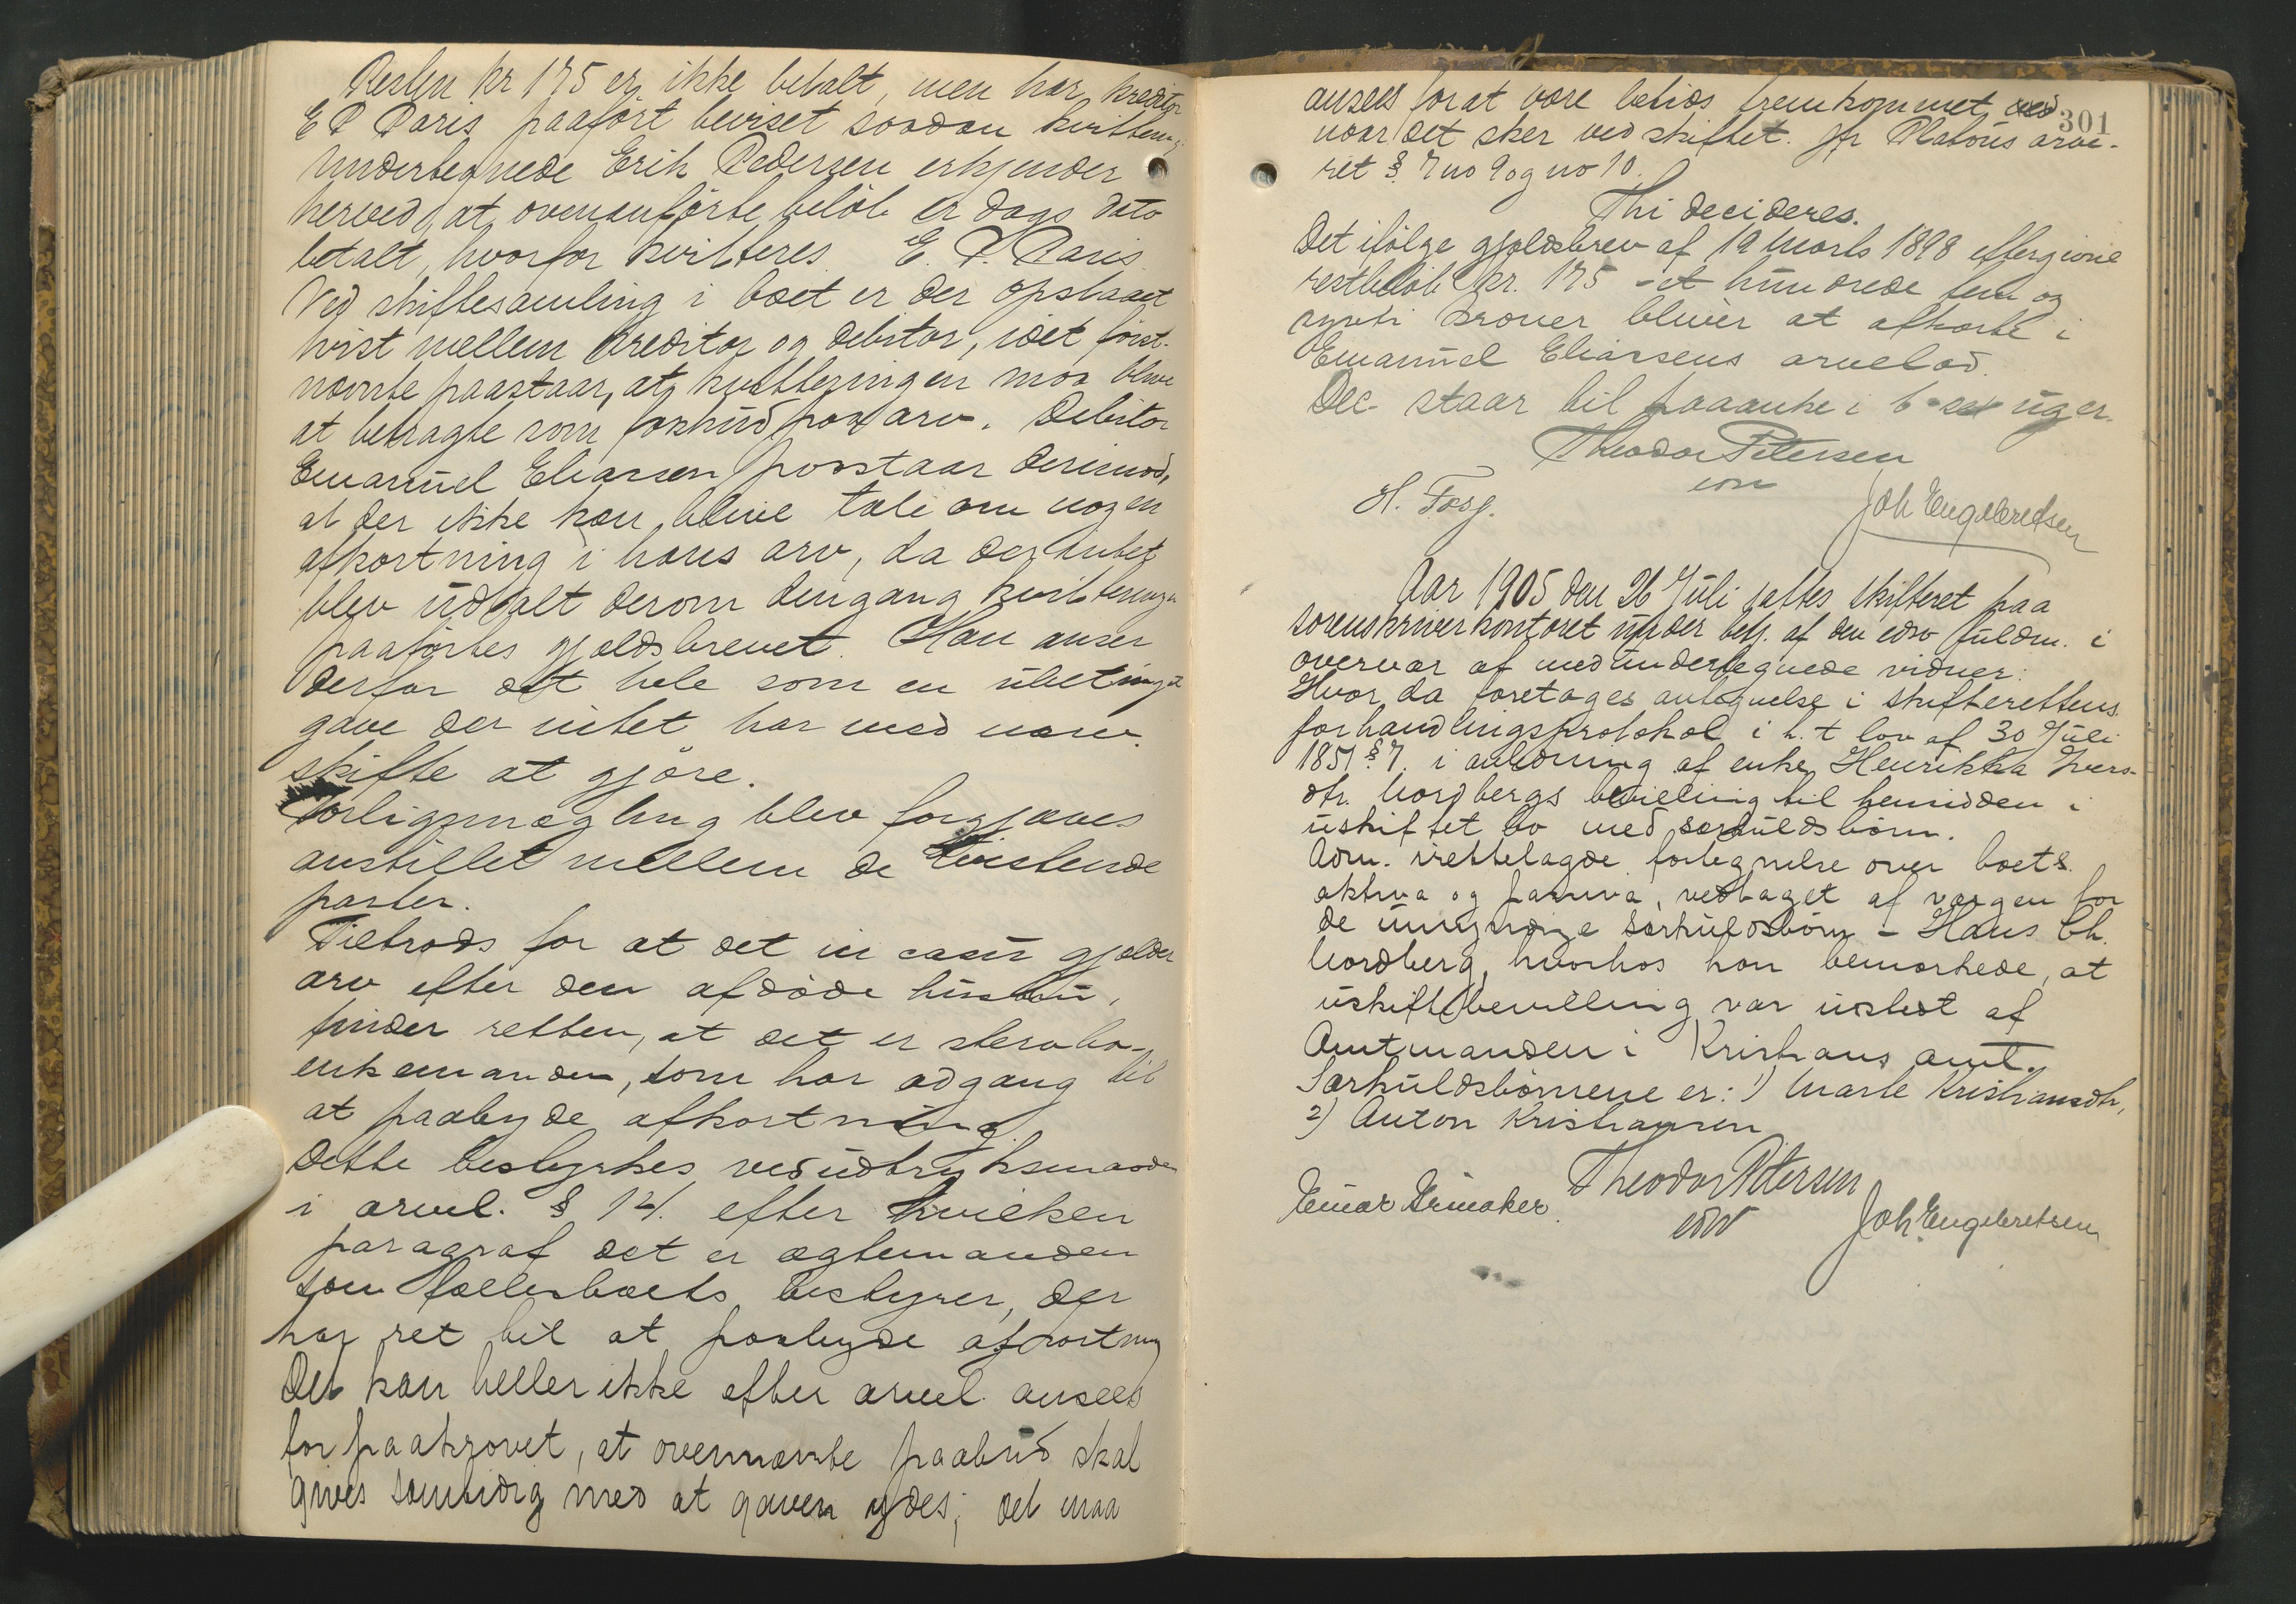 Resten kr 175 er ikke betalt, men har kreditor
E P Paris paaført beviset saadan kvittering:
Undertegnede Erik Pedersen erkjender
herved, at ovenanførte beløb er dags dato
betalt, hvorfor kvitteres. E. P. Paris.
Ved skiftesamling i boet er der opstaaet
tvist mellem kreditor og debitor, idet først-
nævnte paastaar, at kvitteringen maa blive
at betragte som forskud paa arv. Debitor
Emanuel Eliassen paastaar derimod,
at der ikke kan blive tale om nogen
afkortning i hans arv, da der intet
blev udtalt derom dengang kvitteringen
paaførtes gjældsbrevet. Han anser
derfor det hele som en ubetinget
gave der intet har med nærv.
skifte at gjøre.
Forligsmægling blev forgjæves
anstillet mellem de tvistende
parter.
Tiltrods for at det in casu gjælder
arv efter den afdøde hustru,
finder retten, at det er stervbo-
enkemanden, som har adgang til
at paabyde afkortning.
Dette bestyrkes ved udtryksmaaden
i arvel. § 14. efter hvilken
paragraf det er ægtemanden
som fællesboets bestyrer, der
har ret til at paabyde afkortning
Det kan heller ikke efter arvel. ansees
for paakrævet, at ovennævnte paabud skal
gives samtidig med at gaven ydes; det maa
301
ansees for at være betids fremkommet ved
naar det sker ved skiftet. jfr Platous arve-
ret § 7 no 9 og no 10.
Thi decideres.
Det ifølge gjældsbrev af 19 Marts 1898 eftergivne
restbeløb kr. 175 - et hundrede fem og
sytti kroner bliver at afkorte i
Emanuel Eliassens arvelod.
Dec. staar til paaanke i 6 - sex uger.
Theodor Petersen
edsv
H. Fosg.
Joh Engebretsen
Aar 1905 den 26 Juli sattes skifteret paa
sorenskriverkontoret under best. af den edsv fuldm. i
overvær af medundertegnede vidner:
Hvor da foretages antegnelse i skifterettens
forhandlingsprotokol i h. t lov af 30 Juli
1851 § 7. i anledning af enke Henrikka Ivers-
dtr. Nordbergs bevilling til hensidden i
uskiftet bo med særkuldsbørn.
Adm. irettelagde fortegnelse over boets
aktiva og passiva, vedtaget af værgen for
de umyndige særkuldsbørn - Hans Ch.
Nordberg, hvorhos han bemærkede, at
uskiftebevilling var utstedt af
Amtmanden i Kristians amt.
Særkuldsbørnene er: 1) Marte Kristiansdtr,
2) Anton Kristiansen
Theodor Petersen
edsv
Einar
Joh. Engebretsen